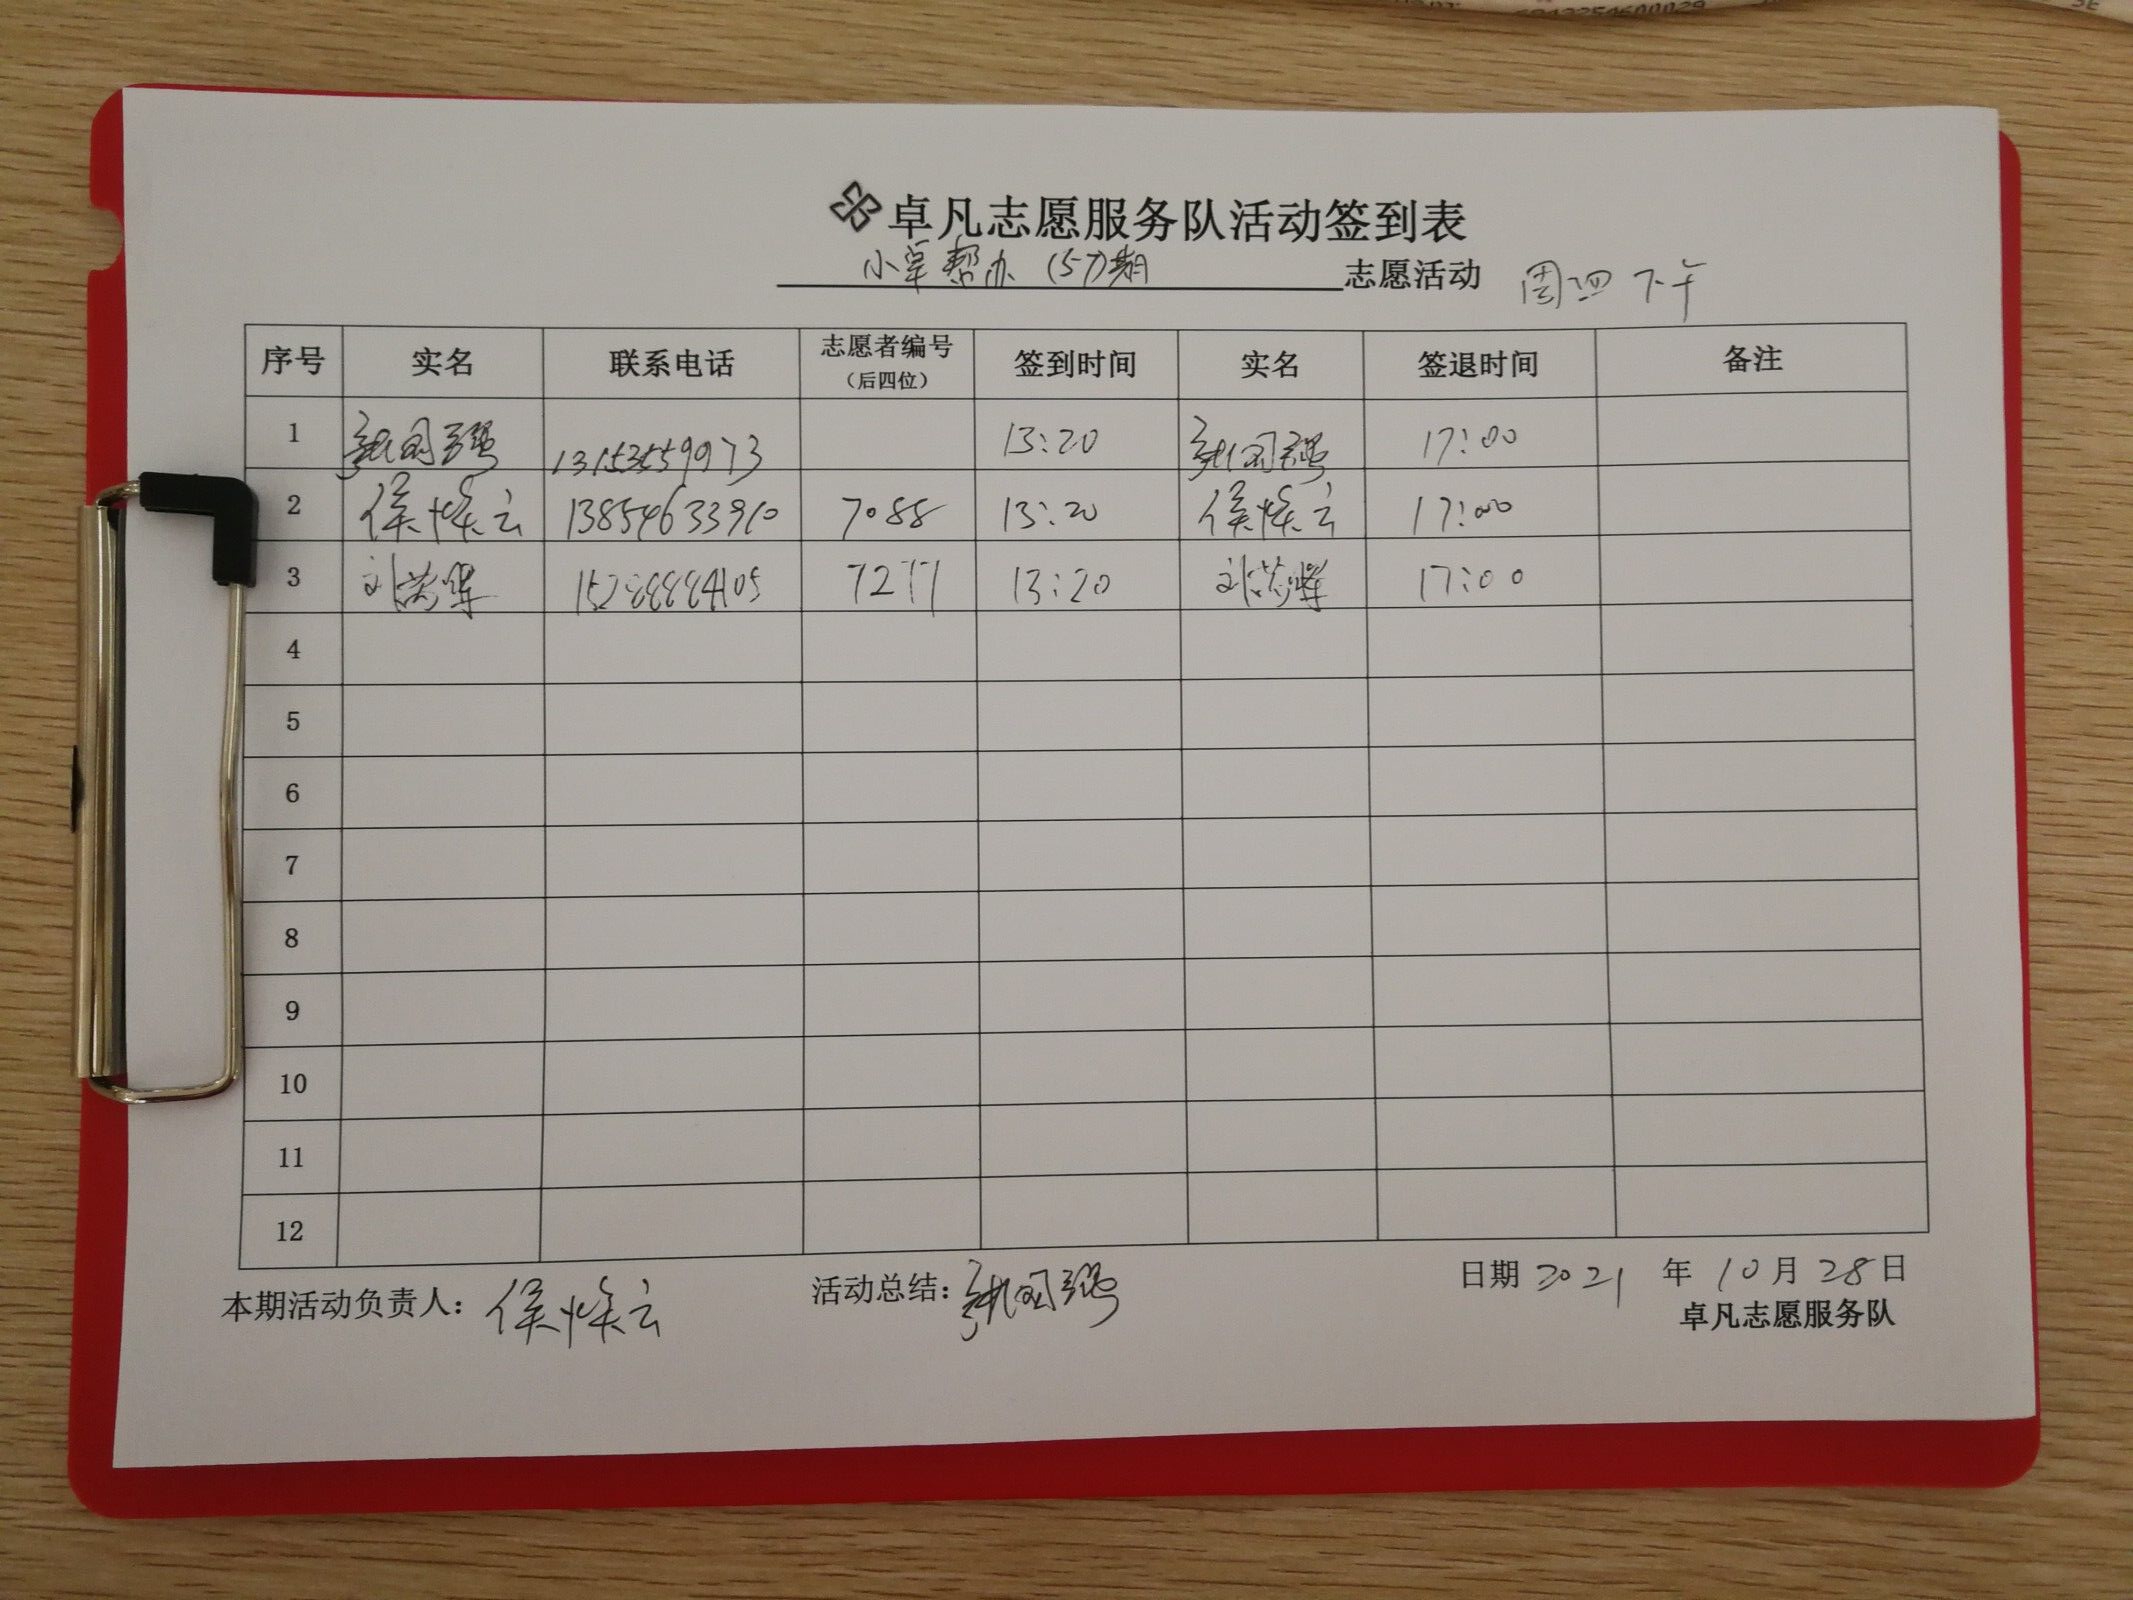 卓凡志愿服务队活动签到表
小卓帮办(57)期 志愿活动 周四下午
序号 实名 联系电话 志愿者编号（后四位） 签到时间 实名 签退时间 备注
1 13153559973 13:20 17:00
2 侯焕云 13854633910 7088 13:20 侯焕云 17:00
3 15288884105 7277 13:20 17:00
4
5
6
7
8
9
10
11
12
本期活动负责人：侯焕云 活动总结： 日期 2021 年 10 月 28 日
卓凡志愿服务队